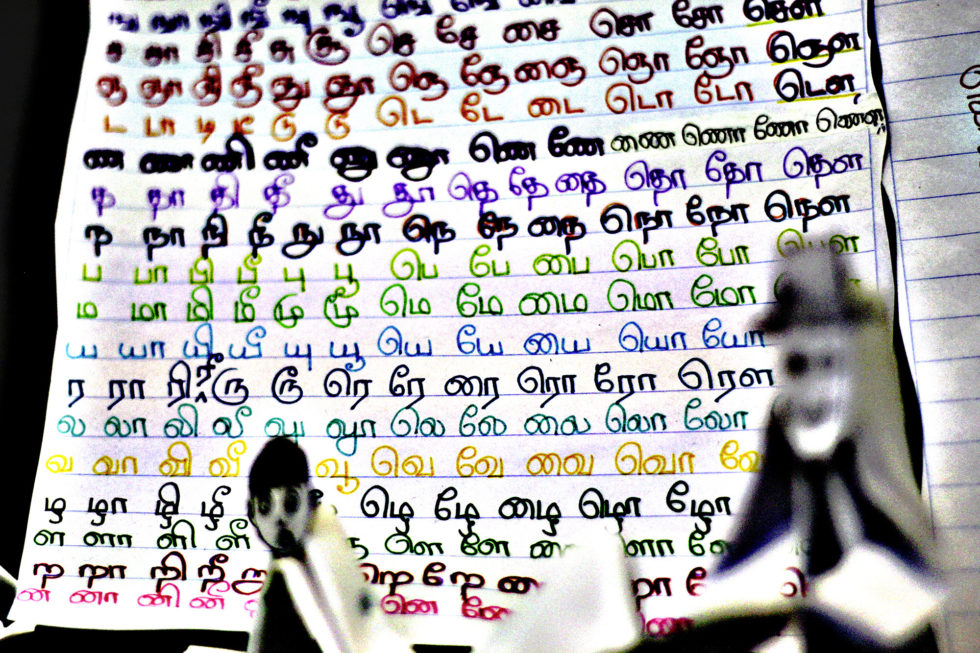 ச சா சி சீ சு சூ செ சே சை சொ சோ சௌ
ஞ ஞா ஞி ஞீ ஞு ஞூ ஞெ ஞே ஞை ஞொ ஞோ ஞௌ
ட டா டி டீ டு டூ டெ டே டை டொ டோ டௌ
ண ணா ணி ணீ ணு ணூ ணெ ணே ணை ணொ ணோ ணௌ
த தா தி தீ து தூ தெ தே தை தொ தோ தௌ
ந நா நி நீ நு நூ நெ நே நை நொ நோ நௌ
ப பா பி பீ பு பூ பெ பே பை பொ போ பௌ
ம மா மி மீ மு மூ மெ மே மை மொ மோ
ய யா யி யீ யு யூ யெ யே யை யொ யோ
ர ரா ரி ரீ ரு ரூ ரெ ரே ரை ரொ ரோ ரௌ
ல லா லி லீ லு லூ லெ லே லை லொ லோ
வ வா வி வீ வூ வெ வே வை வொ
ழ ழா ழி ழீ ழெ ழே ழை ழொ ழோ
ள ளா ளி ளீ ளெ ளே
ற றா றி றீ றெ றே
ன னா னி னீ னெ னே